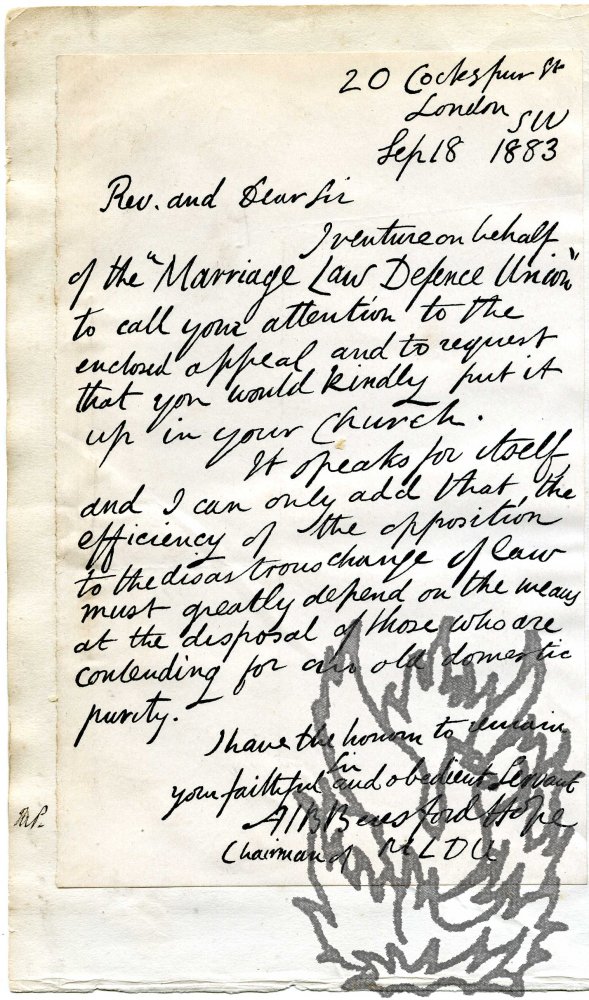 20 Cockspur St
London
SW
Sep 18 1883
Rev. and Dear Sir
I venture on behalf
of the "Marriage Law Defence Union"
to call your attention to the
enclosed appeal and to request
that you would kindly put it
up in your Church.
It speaks for itself,
and I can only add that the
efficiency of the opposition
to the disastrous change of law
must greatly depend on the means
at the disposal of those who are
contending for our old domestic
purity.
I have the honour to remain
Sir
your faithful and obedient Servant
A J B Beresford Hope
Chairman of MLDU
M.P.